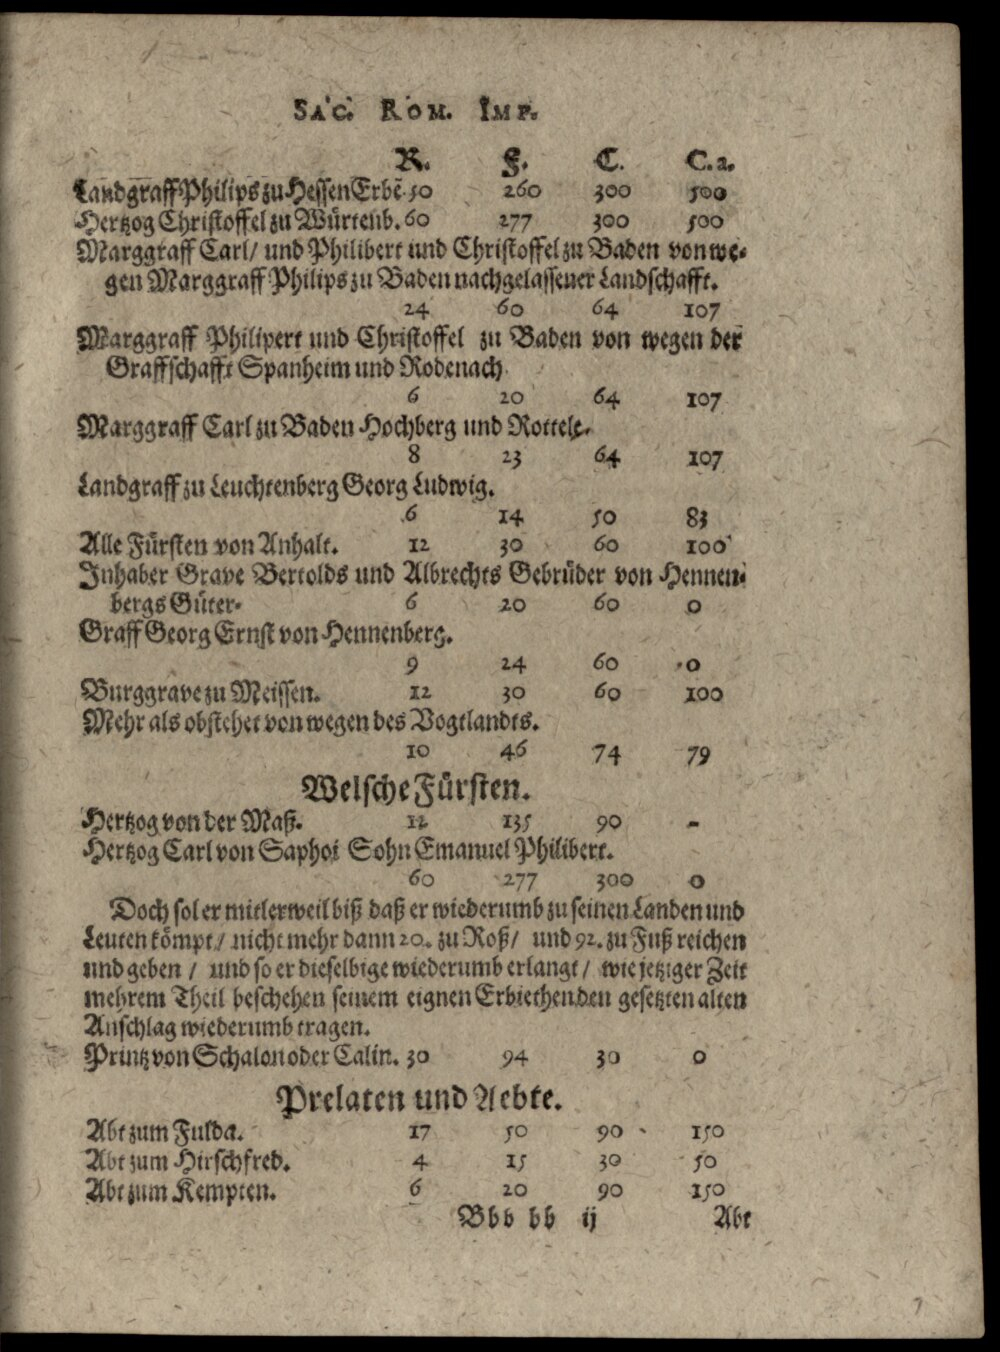 SAC. ROM. IMP.
R. F. C. C. 2.
Landgraff Philips zu Hessen Erbē 50 260 300 500
Hertzog Christoffel zu Würtenb. 60 277 300 500
Marggraff Carl / und Philibert und Christoffel zu Baden von we-
gen Marggraff Philips zu Baden nachgelassener Landschafft.
24 60 64 107
Marggraff Philipert und Christoffel zu Baden von wegen der
Graffschafft Spanheim und Rodenach
6 20 64 107
Marggraff Carl zu Baden Hochberg und Rottele.
8 23 64 107
Landgraff zu Leuchtenberg Georg Ludwig.
6 14 50 83
Alle Fürsten von Anhalt. 12 30 60 100
Inhaber Grave Bertolds und Albrechts Gebrüder von Hennen-
bergs Güter. 6 20 60 0
Graff Georg Ernst von Hennenberg.
9 24 60 0
Burggrave zu Meissen. 12 30 60 100
Mehr als obstehet von wegen des Vogtlandts.
10 46 74 79
Welsche Fürsten.
Hertzog von der Maß. 12 135 90 -
Hertzog Carl von Saphoi Sohn Emanuel Philibert.
60 277 300 0
Doch sol er mitlerweil biß daß er wiederumb zu seinen Landen und
Leuten kömpt / nicht mehr dann 20. zu Roß / und 92. zu Fuß reichen
und geben / und so er dieselbige wiederumb erlangt / wie jetziger Zeit
mehrem Theil beschehen seinem eignen Erbiethen den gesetzten alten
Anschlag wiederumb tragen.
Printz von Schalon oder Calin. 30 94 30 0
Prelaten und Aebte.
Abt zum Fulda. 17 50 90 150
Abt zum Hirschfred. 4 15 30 50
Abt zum Kempten. 6 20 90 150
Bbb bb ij Abt